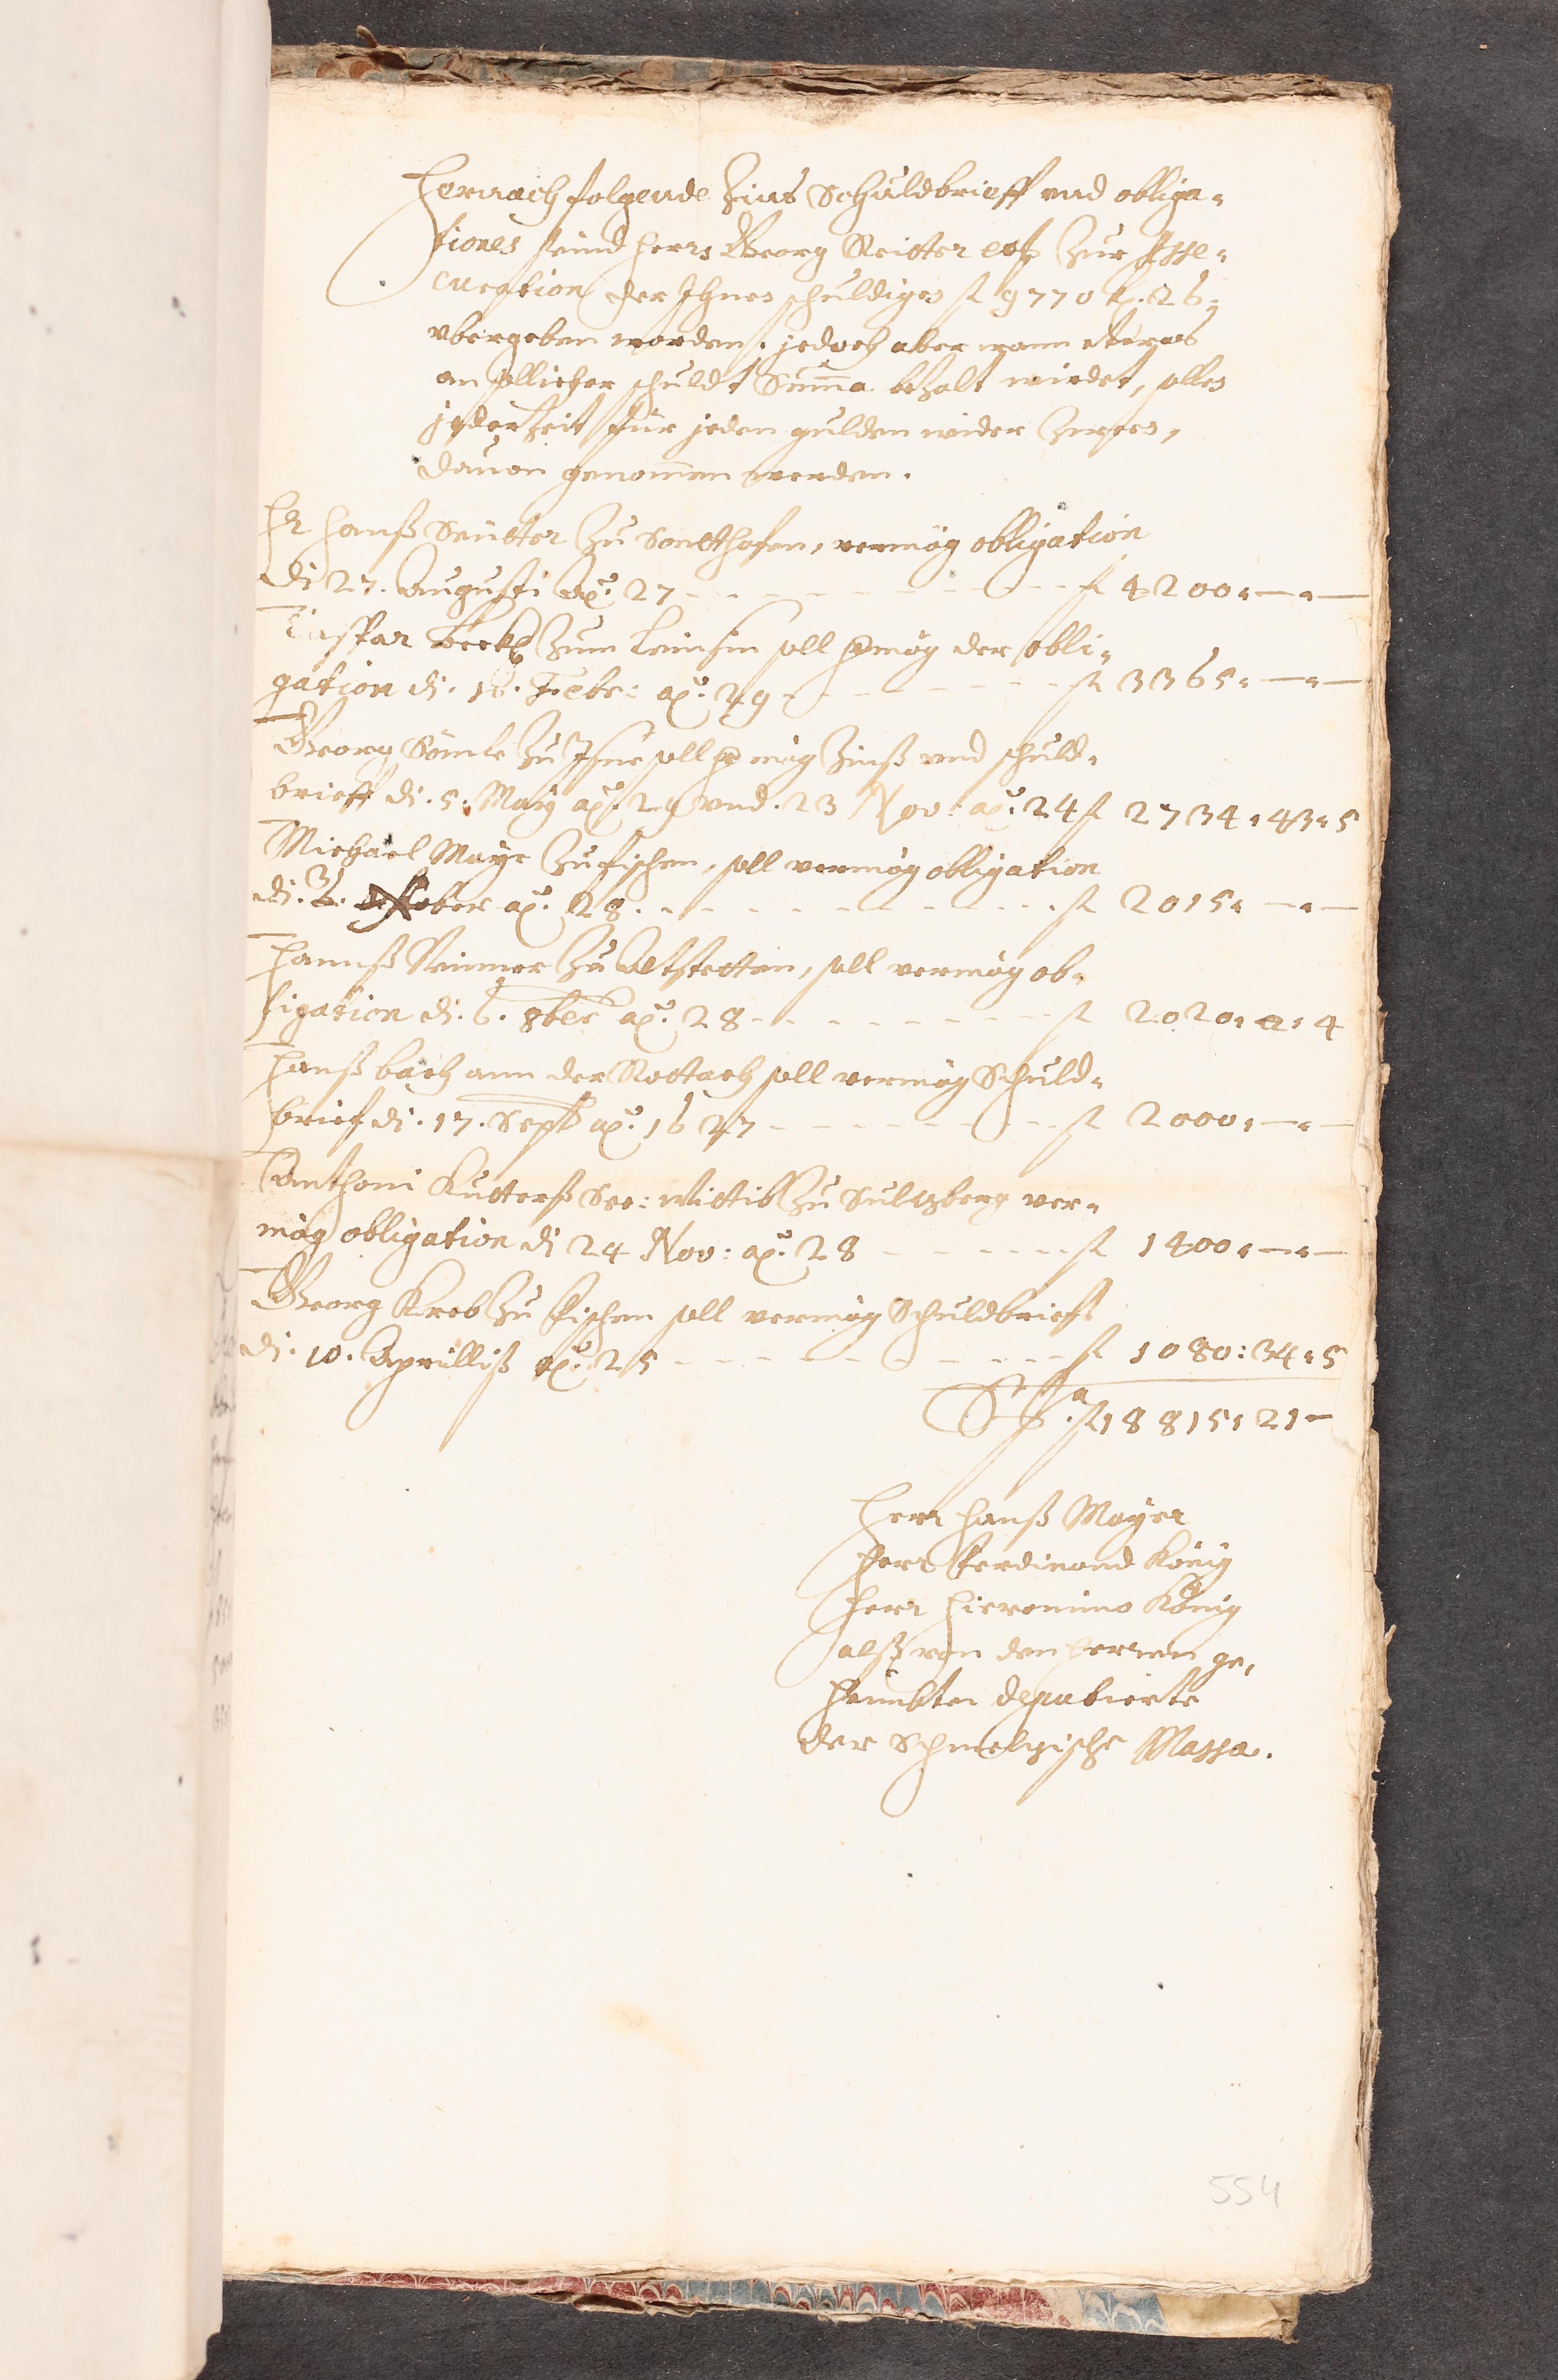 Hernach folgende Zins Schuldbrieff vnd obliga-
tiones seind Herrn Georg Reitter etc Zur Asse-
curation der Ihnen schuldigen fl 9770 k. 26-
vbergeben worden. jedoch aber wann etwas
an sollicher schuldt Summa bezalt wirdet, solles
jederzeit für jeden gulden wider Zween,
dauon genommen werden.
Hr Hanß Seutter Zu Sontthofen, vermög obligation
di 27. Augusti aō: 27 - - - fl 4200. — . —
Caspar Zum soll vermög der obli-
gation di. 16. Febr: aō: 29 - - - fl 3365. — . —
Georg Zu Isne soll vermög Zinß vnd schuld-
brieff di. 5. Maij aō: 29 vnd. 23 Nov: aō: 24 fl 2734. 43. 5
Michael Mayr Zu Fischen, soll vermög obligation
di. 31. October aō. 28. - - - fl 2015. — . —
Hannß Zu Altstetten, soll vermög ob-
ligation di. 6. 8ber aō: 28 - - - fl 2020. 2. 4
Hanß bach ann der Rottach soll vermög Schuld-
brief di. 17. Sept aō: 1627 - - - fl 2000. — . —
Anthoni Kutterß See: Wittib Zu Sultzberg ver-
mög obligation di 24 Nov: aō: 28 - - - fl 1400. — . —
Georg Kreb Zu Fischen soll vermög Schuldbrieff
di. 10. Aprilliß aō: 25 - - - fl 1080: 34. 5
Sa. fl 18815. 21 -
Herr Hanß Mayer
Herr Ferdinand König
Herr Hieronimo König
alß von den Herren ge-
deputierte
der Schmelzische Massa.
554